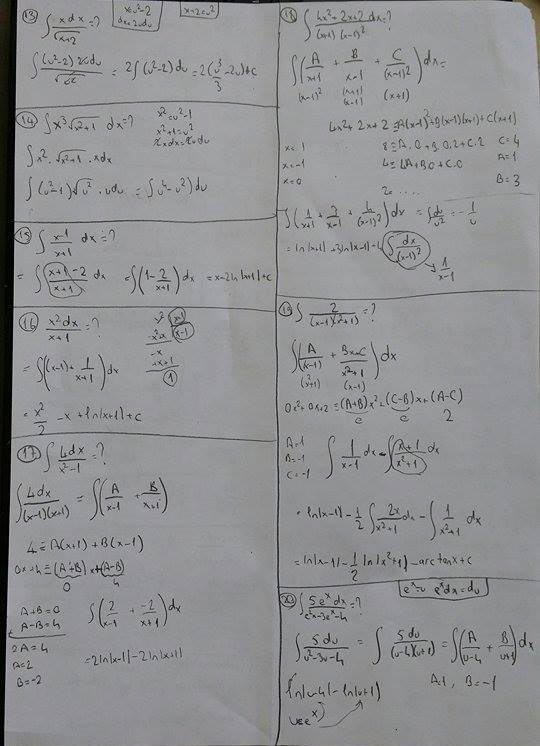 13) ∫ x dx / √(x+2) = ?
x = u²-2
dx = 2u du
x+2 = u²
∫ (u²-2) 2u du / √u² = 2∫(u²-2) du = 2(u³/3 - 2u) + C
14) ∫ x³√(x²+1) dx = ?
x² = u²-1
x²+1 = u²
2x dx = 2u du
∫ x² · √(x²+1) · x dx
∫ (u²-1)√u² · u du = ∫(u⁴-u²) du
15) ∫ (x-1)/(x+1) dx = ?
= ∫ (x+1-2)/(x+1) dx = ∫(1 - 2/(x+1)) dx = x - 2 ln|x+1| + C
16) ∫ x² dx/(x+1) = ?
x² | x+1
x²+x | x-1
-x
-x+1
1
= ∫((x-1) + 1/(x+1)) dx
= x²/2 - x + ln|x+1| + C
17) ∫ 4dx/(x²-1) = ?
∫ 4dx/((x-1)(x+1)) = ∫(A/(x-1) + B/(x+1))
4 ≡ A(x+1) + B(x-1)
0x+4 ≡ (A+B)x + (A-B)
0 4
A+B = 0
A-B = 4
2A = 4
A = 2
B = -2
∫(2/(x-1) + -2/(x+1)) dx
= 2 ln|x-1| - 2 ln|x+1|
18) ∫ (4x²+2x+2 dx)/((x+1)(x-1)²) = ?
∫(A/(x+1) + B/(x-1) + C/(x-1)²) dx =
(x-1)² (x+1)(x-1) (x+1)
4x²+2x+2 ≡ A(x-1)²+B(x-1)(x+1) + C(x+1)
x = 1 8 = A.0 + B.0.2 + C.2 C = 4
x = -1 4 = 4A + B.0 + C.0 A = 1
x = 0 2 = .... B = 3
∫(1/(x+1) + 3/(x-1) + 4/(x-1)²) dx = ∫ du/u² = -1/u
= ln|x+1| + 3 ln|x-1| - 4 ∫ dx/(x-1)²
1/(x-1)
∫ 2/((x-1)(x²+1)) = ?
∫(A/(x-1) + (Bx+C)/(x²+1)) dx
(x²+1) (x-1)
0x²+0x+2 ≡ (A+B)x² + (C-B)x + (A-C)
0 0 2
A = 1
B = -1
C = -1
∫ 1/(x-1) dx - ∫ (x+1)/(x²+1) dx
= ln|x-1| - 1/2 ∫ 2x/(x²+1) dx - ∫ 1/(x²+1) dx
= ln|x-1| - 1/2 ln|x²+1| - arc tanx + C
20) ∫ 5eˣ dx/(e²ˣ-3eˣ-4) = ?
eˣ = u eˣdx = du
∫ 5du/(u²-3u-4) = ∫ 5du/((u-4)(u+1)) = ∫(A/(u-4) + B/(u+1)) dx
A = 1, B = -1
ln|u-4| - ln|u+1|
u = eˣ